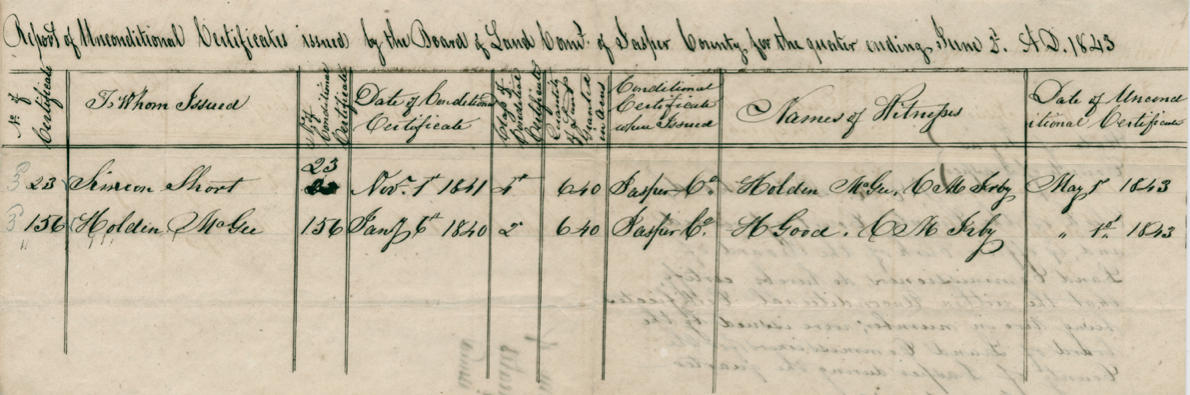 Report of Unconditional Certificates issued by the Board of Land Comrs. of Jasper County, for the quater ending June 2d. A.D. 1843
No. of Certificate
To Whom Issued
No. of Conditional Certificate
Date of Condition Certificate
Class of Condition Certificate
Quantity of Land Granted in acres
Conditional Certificate when Issued
Names of Witness
Date of Uncond itional Certificate
23 Simeon Short 23 Novr. 1st 1841 4th 640 Jasper Co. Holden McGee, C M Irby May 1st 1843
156 Holden McGee 156 Jany 6th 1840 2d 640 Jasper Co. H Good. C M Irby " 1st 1843